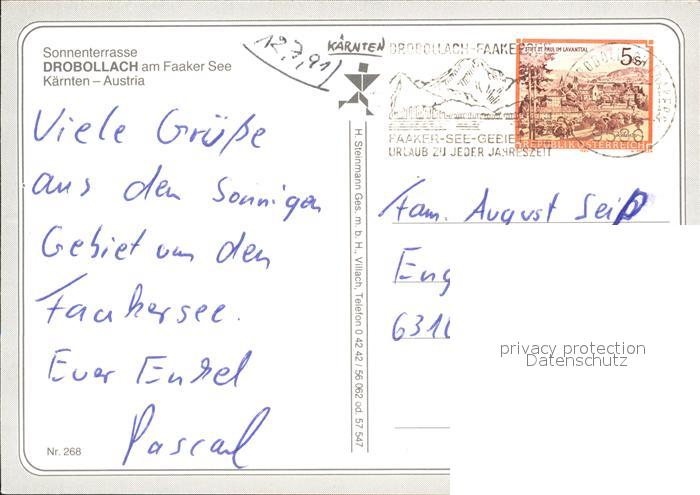 Sonnenterrasse
DROBOLLACH am Faaker See
Kärnten – Austria
12.7.91
KÄRNTEN
DROBOLLACH-FAAKERSEE
FAAKER-SEE-GEBIET
URLAUB ZU JEDER JAHRESZEIT
STIFT ST. PAUL IM LAVANTTAL
5 S
REPUBLIK ÖSTERREICH
Viele Grüße
aus dem Sonnigen
Gebiet um den
Faakersee.
Euer Enkel
Pascal
Nr. 268
H. Steinmann Ges. m. b. H., Villach, Telefon 0 42 42 / 56 062 od. 57 547
Fam. August Seip
Eng
631
privacy protection
Datenschutz